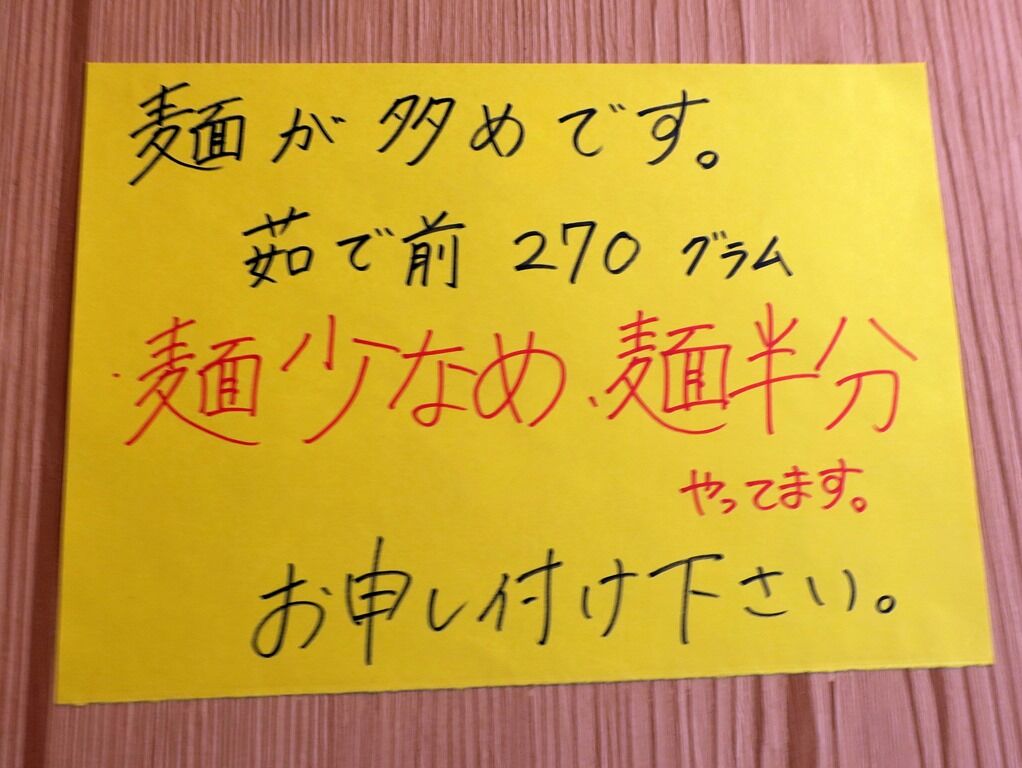 麺が多めです。
茹で前 270 グラム
麺少なめ、麺半分
やってます。
お申し付け下さい。